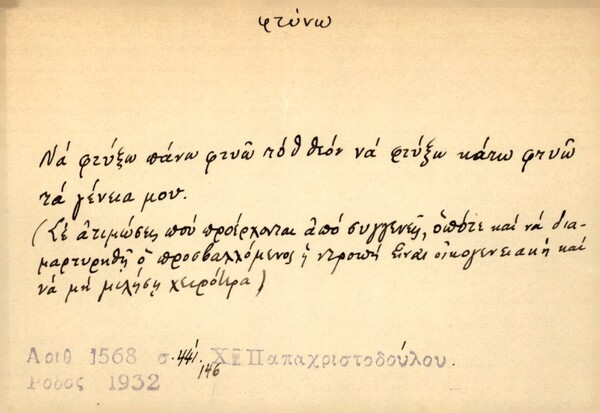 φτύνω
Νά φτύξω πάνω φτυῶ τόθ θεόν νά φτύξω κάτω φτυῶ
τά γένεια μου.
(Σέ ἀτιμώσεις πού προέρχονται ἀπό συγγενεῖς, ὁπότε καί νά δια-
μαρτυρηθῇ ὁ προσβαλλόμενος ἡ ντροπή εἶναι οἰκογενειακή καί
νά μή μιλήσῃ χειρότερα)
Αριθ 1568 σ. 441. Χ Παπαχριστοδούλου.
146
Ρόδος 1932